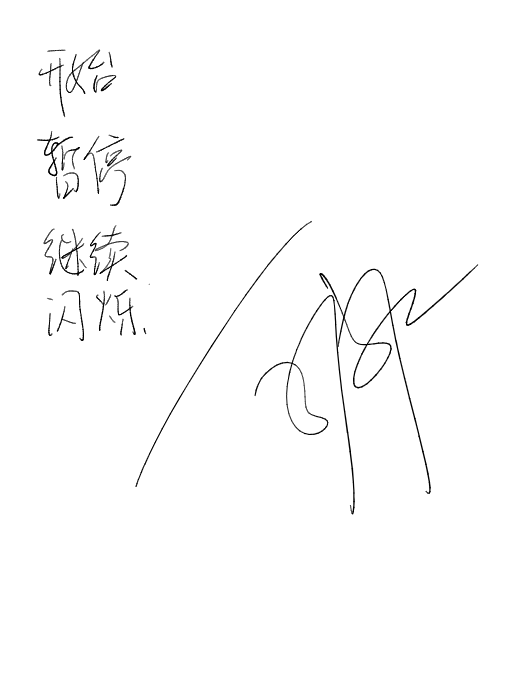 开始
暂停
继续
闪烁